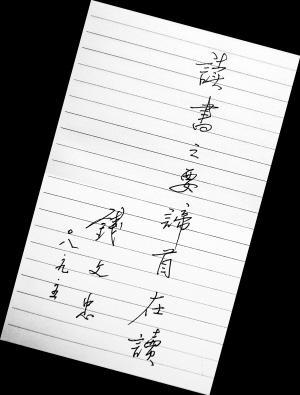 讀書之要諦首在讀
錢文忠
〇八、九、五